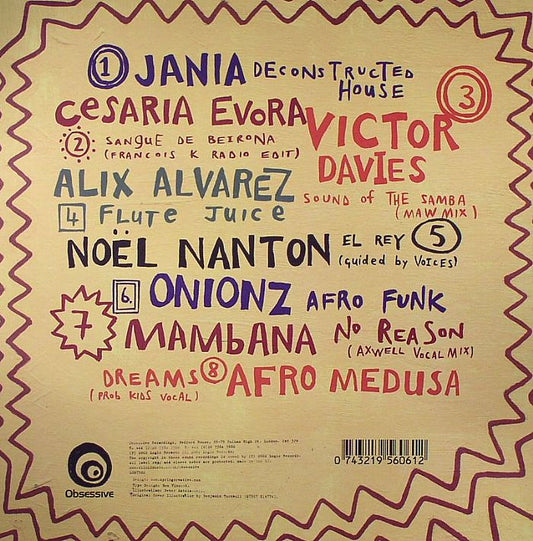 1 JANIA DECONSTRUCTED
HOUSE
CESARIA EVORA
2 SANGUE DE BEIRONA
(FRANCOIS K RADIO EDIT)
3 VICTOR
DAVIES
SOUND of THE SAMBA
(MAW MIX)
ALIX ALVAREZ
4 FLUTE JUICE
NOËL NANTON EL REY 5
(guided by VOICES)
6. ONIONZ AFRO FUNK
7 MAMBANA NO REASON
(AXWELL VOCAL MIX)
DREAMS 8 AFRO MEDUSA
(PROB KIDS VOCAL)
Obsessive
0 743219 560612